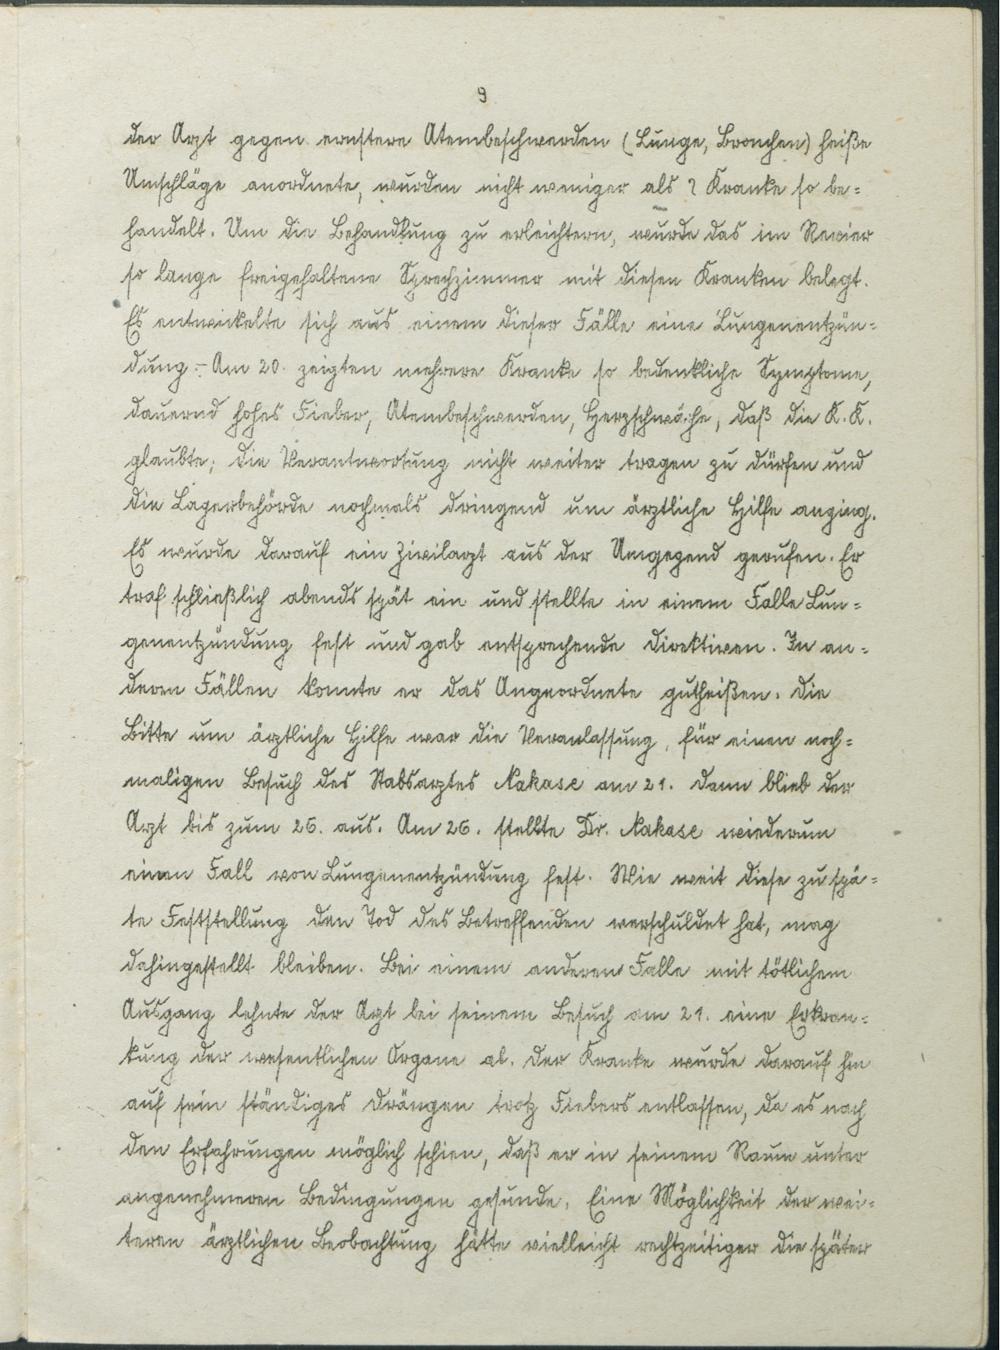 9
der Arzt gegen ernstere Atembeschwerden (Lunge, Bronchen) heiße
Umschläge anordnete, wurden nicht weniger als 7 Kranke so be=
handelt. Um die Behandlung zu erleichtern, wurde das im Revier
so lange freigehaltene Sprechzimmer mit diesen Kranken belegt.
Es entwickelte sich aus einem dieser Fälle eine Lungenentzün=
dung.– Am 20. zeigten mehrere Kranke so bedenkliche Symptome,
dauernd hohes Fieber, Atembeschwerden, Herzschwäche, daß die K.K.
glaubte, die Verantwortung nicht weiter tragen zu dürfen und
die Lagerbehörde nochmals dringend um ärztliche Hilfe anging.
Es wurde darauf ein Zivilarzt aus der Umgegend gerufen. Er
traf schließlich abends spät ein und stellte in einem Falle Lun=
genentzündung fest und gab entsprechende Direktiven. In an=
deren Fällen konnte er das Angeordnete gutheißen. Die
Bitte um ärztliche Hilfe war die Veranlassung, für einen noch=
maligen Besuch des Stabsarztes Nakase am 21. Dann blieb der
Arzt bis zum 26. aus. Am 26. stellte Dr. Nakase wiederum
einen Fall von Lungenentzündung fest. Wie weit diese zu spä=
te Feststellung den Tod des Betreffenden verschuldet hat, mag
dahingestellt bleiben. Bei einem anderen Falle mit tötlichem
Ausgang lehnte der Arzt bei seinem Besuch am 21. eine Erkran=
kung der wesentlichen Organe ab. Der Kranke wurde darauf hin
auf sein ständiges Drängen trotz Fiebers entlassen, da es nach
den Erfahrungen möglich schien, daß er in seinem Raum unter
angenehmeren Bedingungen gesunde. Eine Möglichkeit der wei=
teren ärztlichen Beobachtung hätte vielleicht rechtzeitiger die später